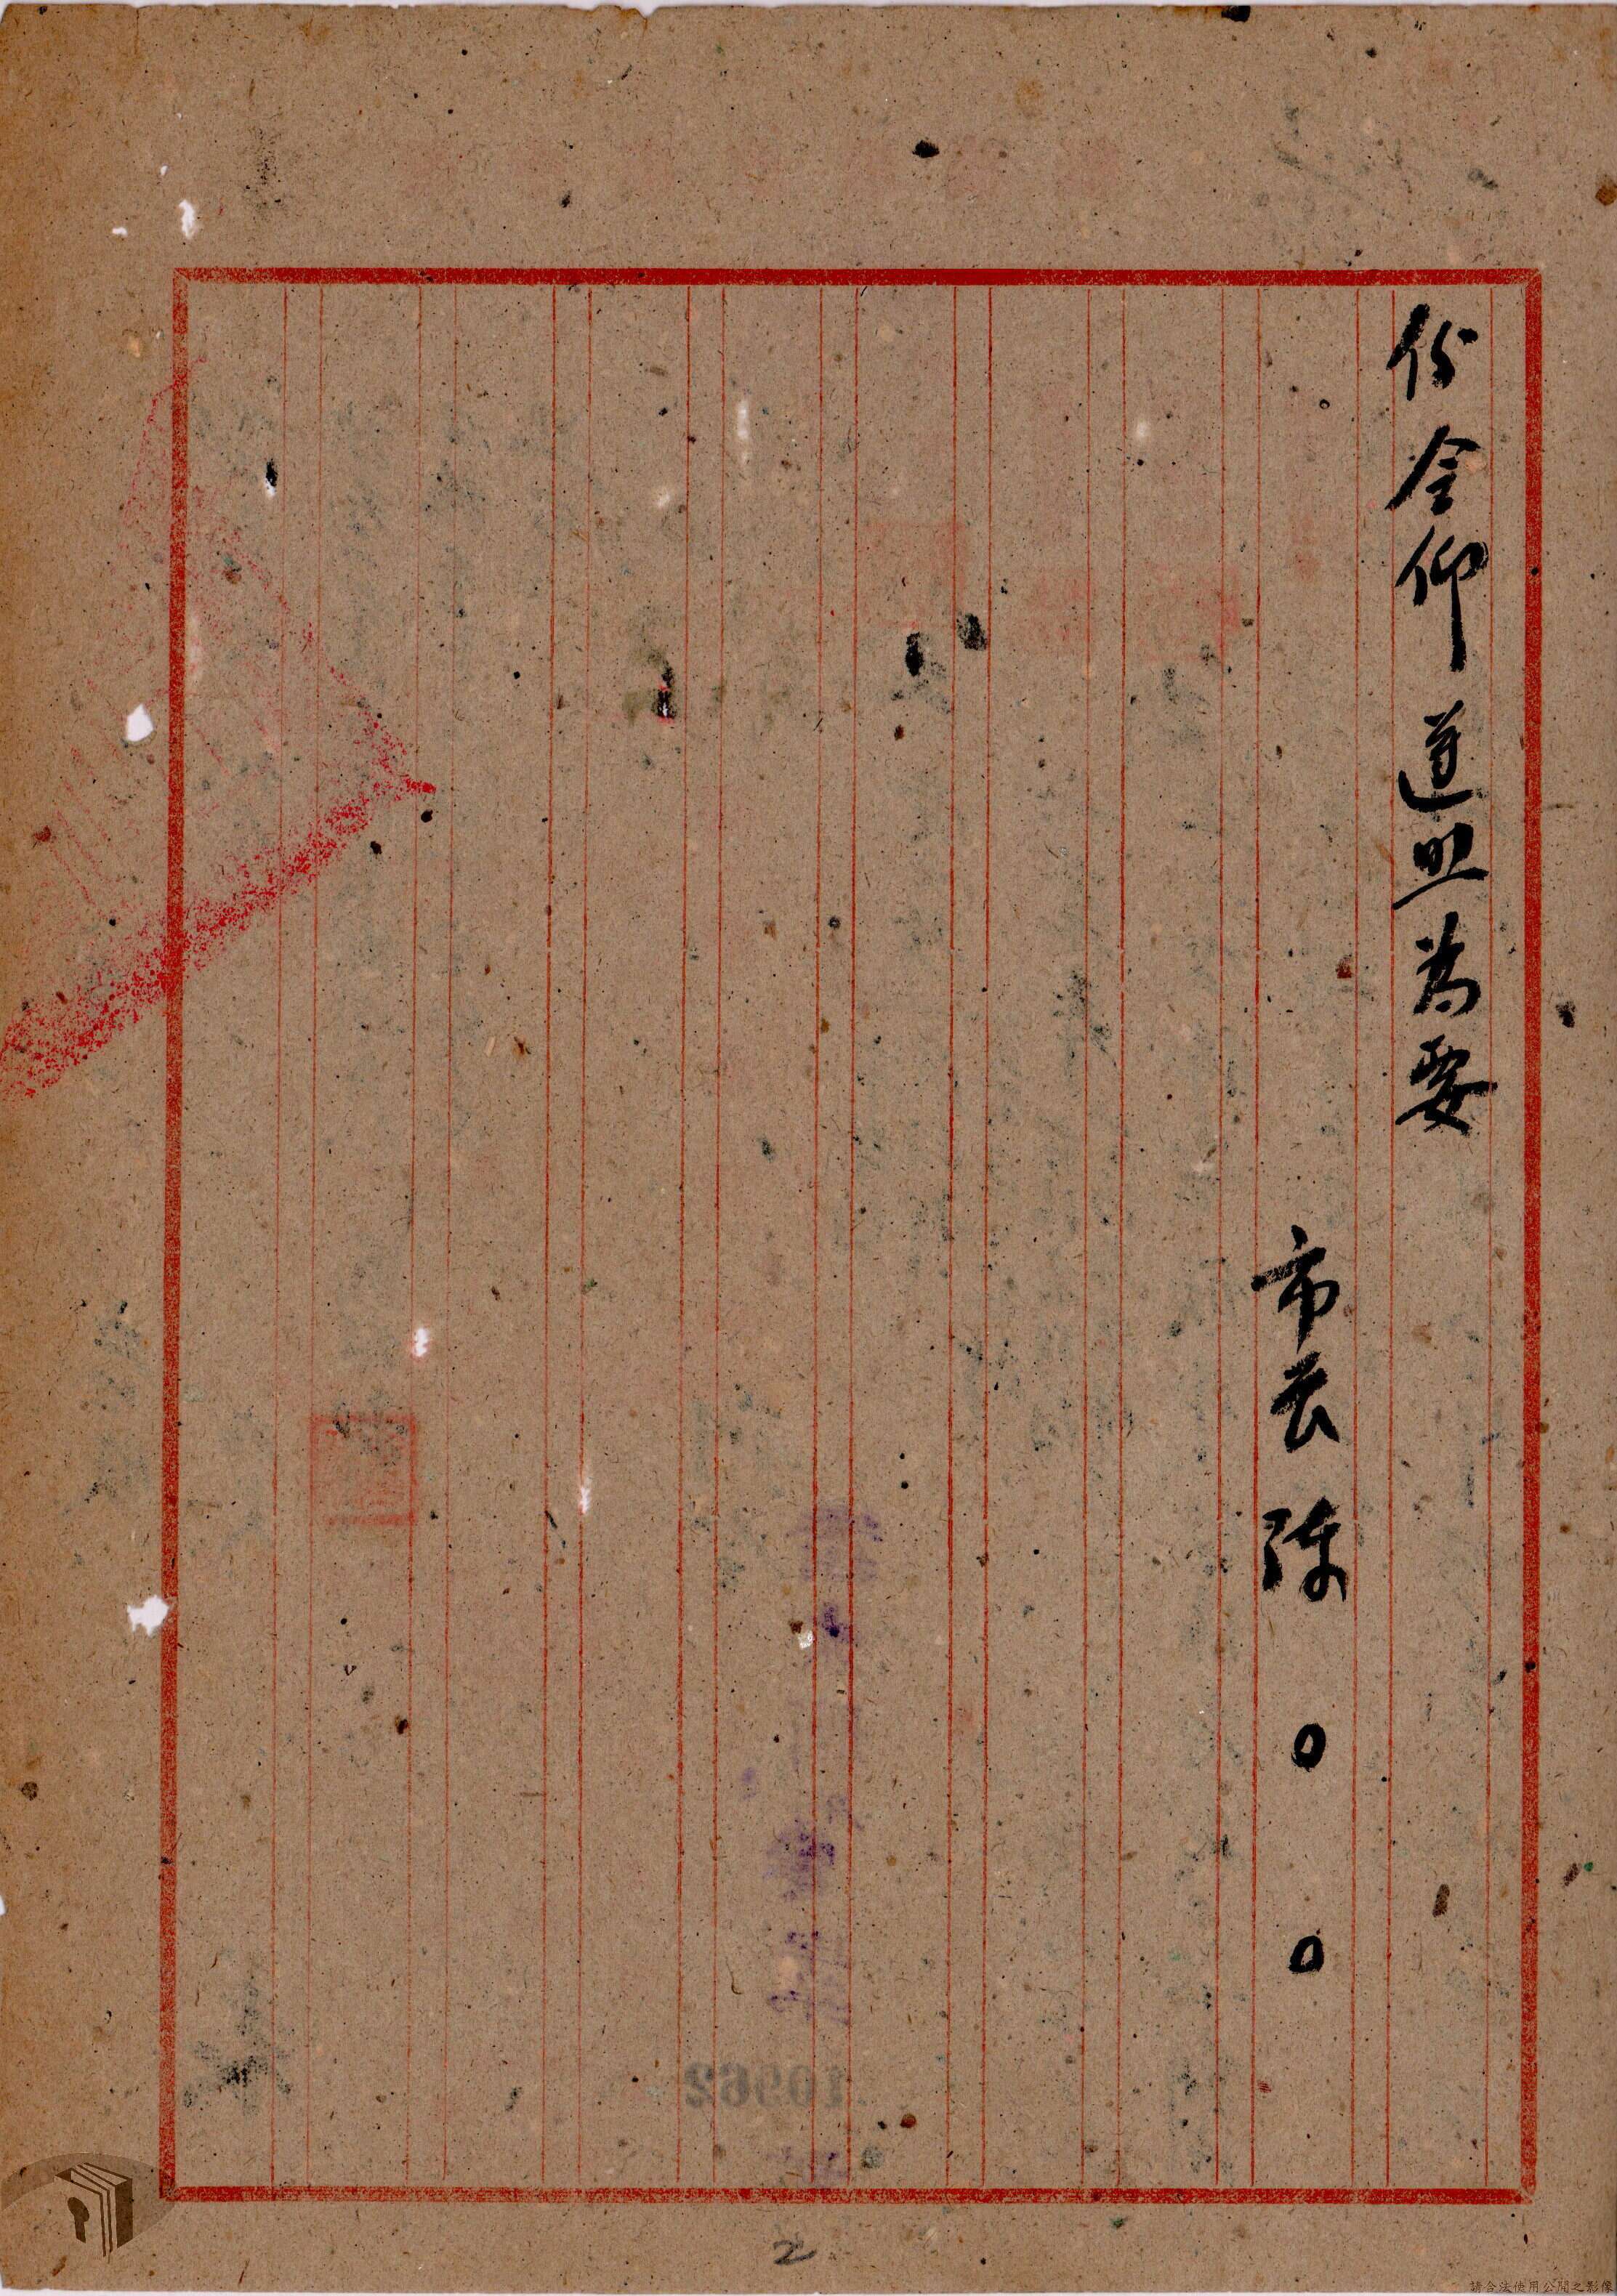 份令仰遵照為要
市長陳〇〇
2
請合法使用公開之影像